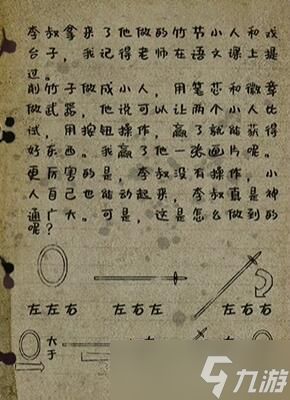 李叔拿来了他做的竹节小人和戏
台子，我记得老师在语文课上提
过。
削竹子做成小人，用笔芯和徽章
做武器，他说可以让两个小人比
试，用按钮操作，赢了就能获得
好东西。我赢了他一张画片呢。
更厉害的是，李叔没有操作，小
人自己也能动起来，李叔真是神
通广大。可是，这是怎么做到的
呢？
左左右 左右左 左右右
大
于
九游